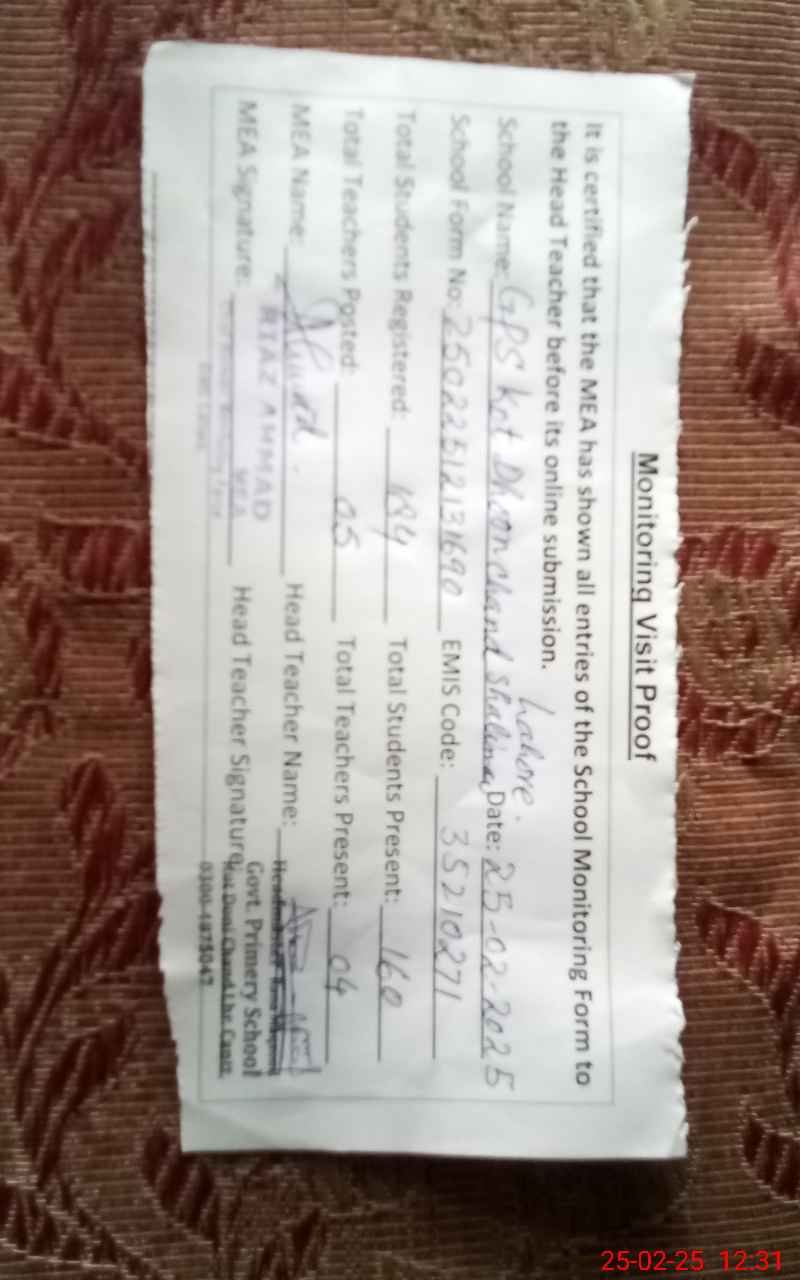 Monitoring Visit Proof
It is certified that the MEA has shown all entries of the School Monitoring Form to
the Head Teacher before its online submission.
Lahore.
School Name: GPS Kot Dhooni Chand Shalimar, Date: 25-02-2025
School Form No: 25022512131690 EMIS Code: 35210271
Total Students Registered: 184 Total Students Present: 160
Total Teachers Posted: 05 Total Teachers Present: 04
MEA Name: Head Teacher Name:
RIAZ AHMAD
MEA
MEA Signature: Head Teacher Signature:
Govt. Primery School
Kot Duni Chand Lhr. Cantt.
25-02-25 12:31